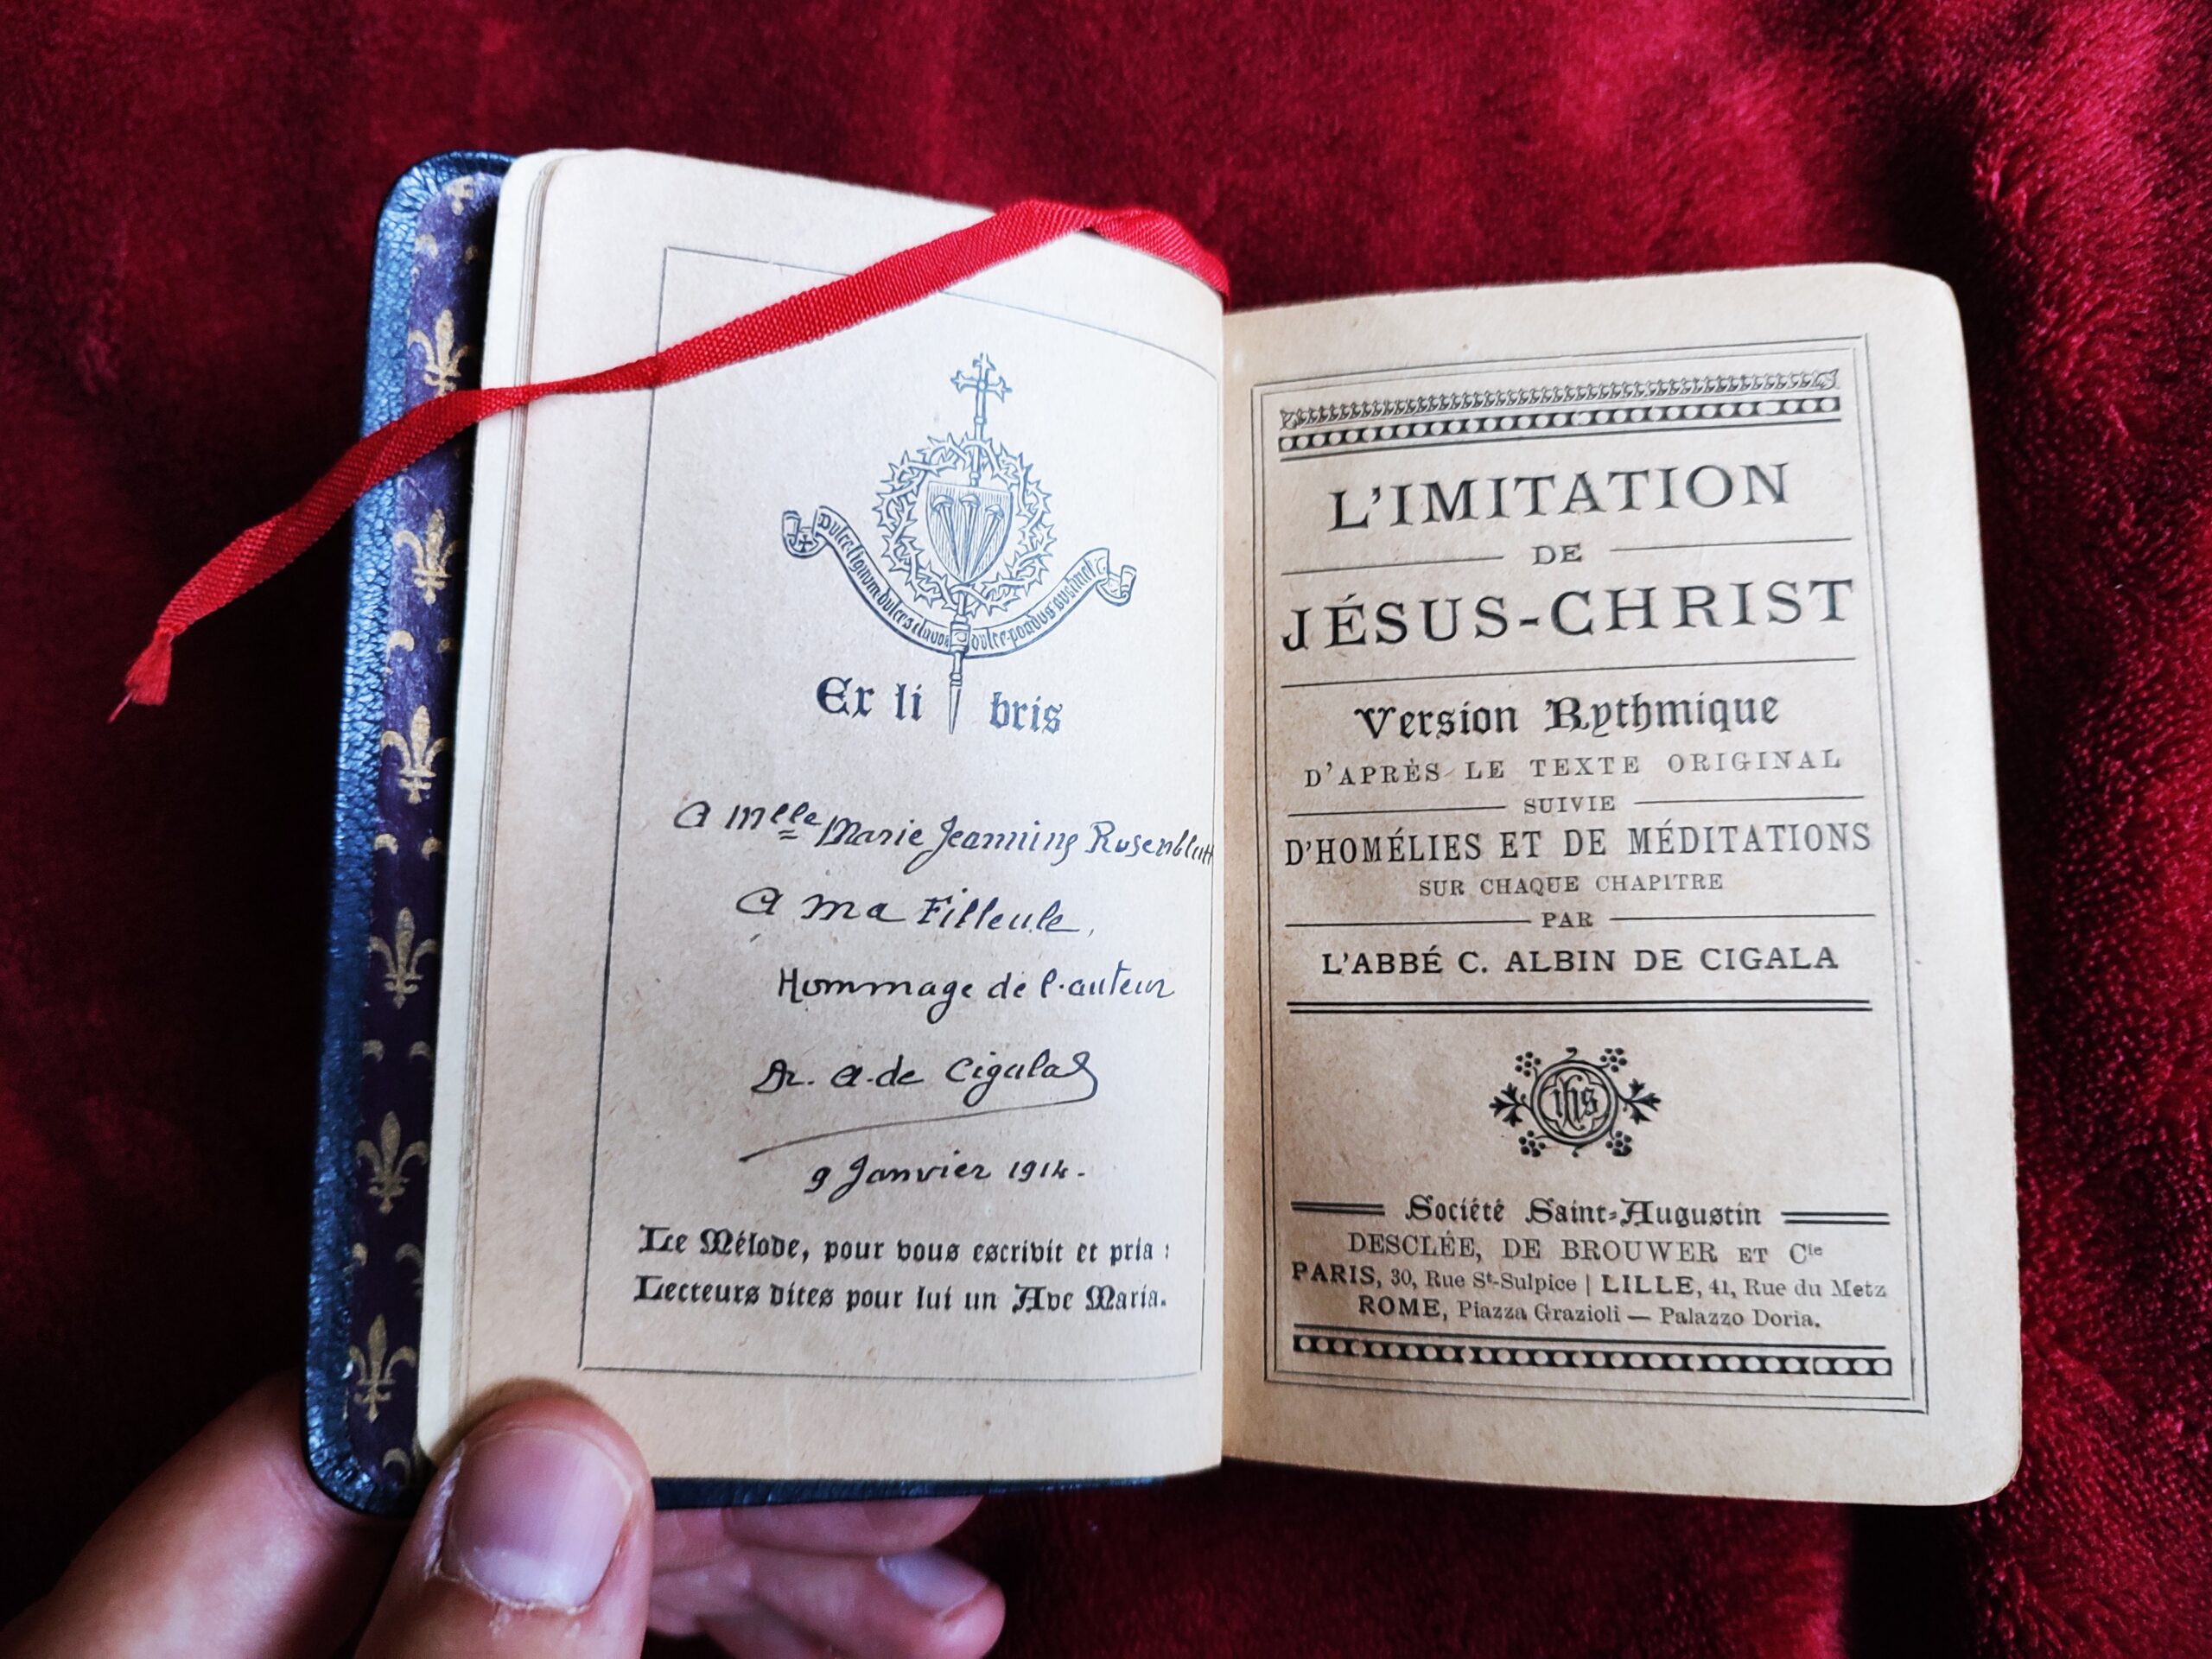 Dulce lignum dulces clavos dulce pondus sustinet
Ex libris
A Mlle Marie Jeannine Rosenblatt
A ma Filleule,
Hommage de l'auteur
Dr. A. de Cigala
9 Janvier 1914.
Le Mélode, pour vous escrivit et pria :
Lecteurs dites pour lui un Ave Maria.
L'IMITATION
DE
JÉSUS-CHRIST
Version Rythmique
D'APRÈS LE TEXTE ORIGINAL
SUIVIE
D'HOMÉLIES ET DE MÉDITATIONS
SUR CHAQUE CHAPITRE
PAR
L'ABBÉ C. ALBIN DE CIGALA
ihs
Société Saint-Augustin
DESCLÉE, DE BROUWER ET Cie
PARIS, 30, Rue St-Sulpice | LILLE, 41, Rue du Metz
ROME, Piazza Grazioli — Palazzo Doria.